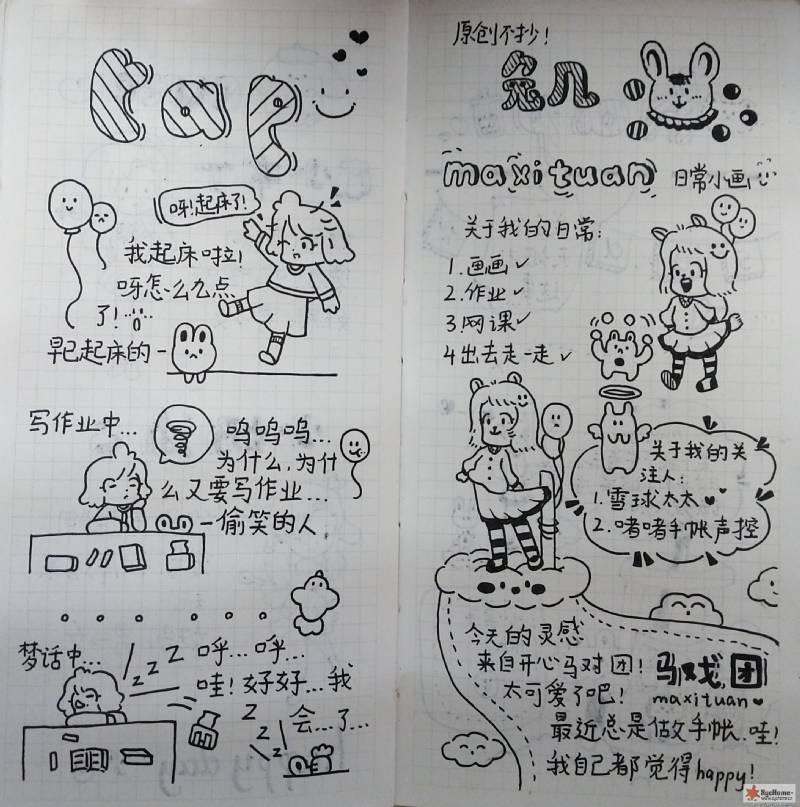 呀!起床了!
我起床啦!
呀怎么九点
了!
早已起床的一
写作业中...
呜呜呜...
为什么,为什
么又要写作业...
一偷笑的人
梦话中...
z z z
呼...呼...
哇!好好...我
会...了...
z z z
原创不抄!
兔几
maxituan 日常小画
关于我的日常:
1.画画✓
2.作业✓
3.网课✓
4出去走一走✓
关于我的关
注人:
1.雪球太太
2.啫啫手帐声控
今天的灵感
来自开心马对团!
太可爱了吧!
马戏团
maxituan
最近总是做手帐.哇!
我自己都觉得happy!